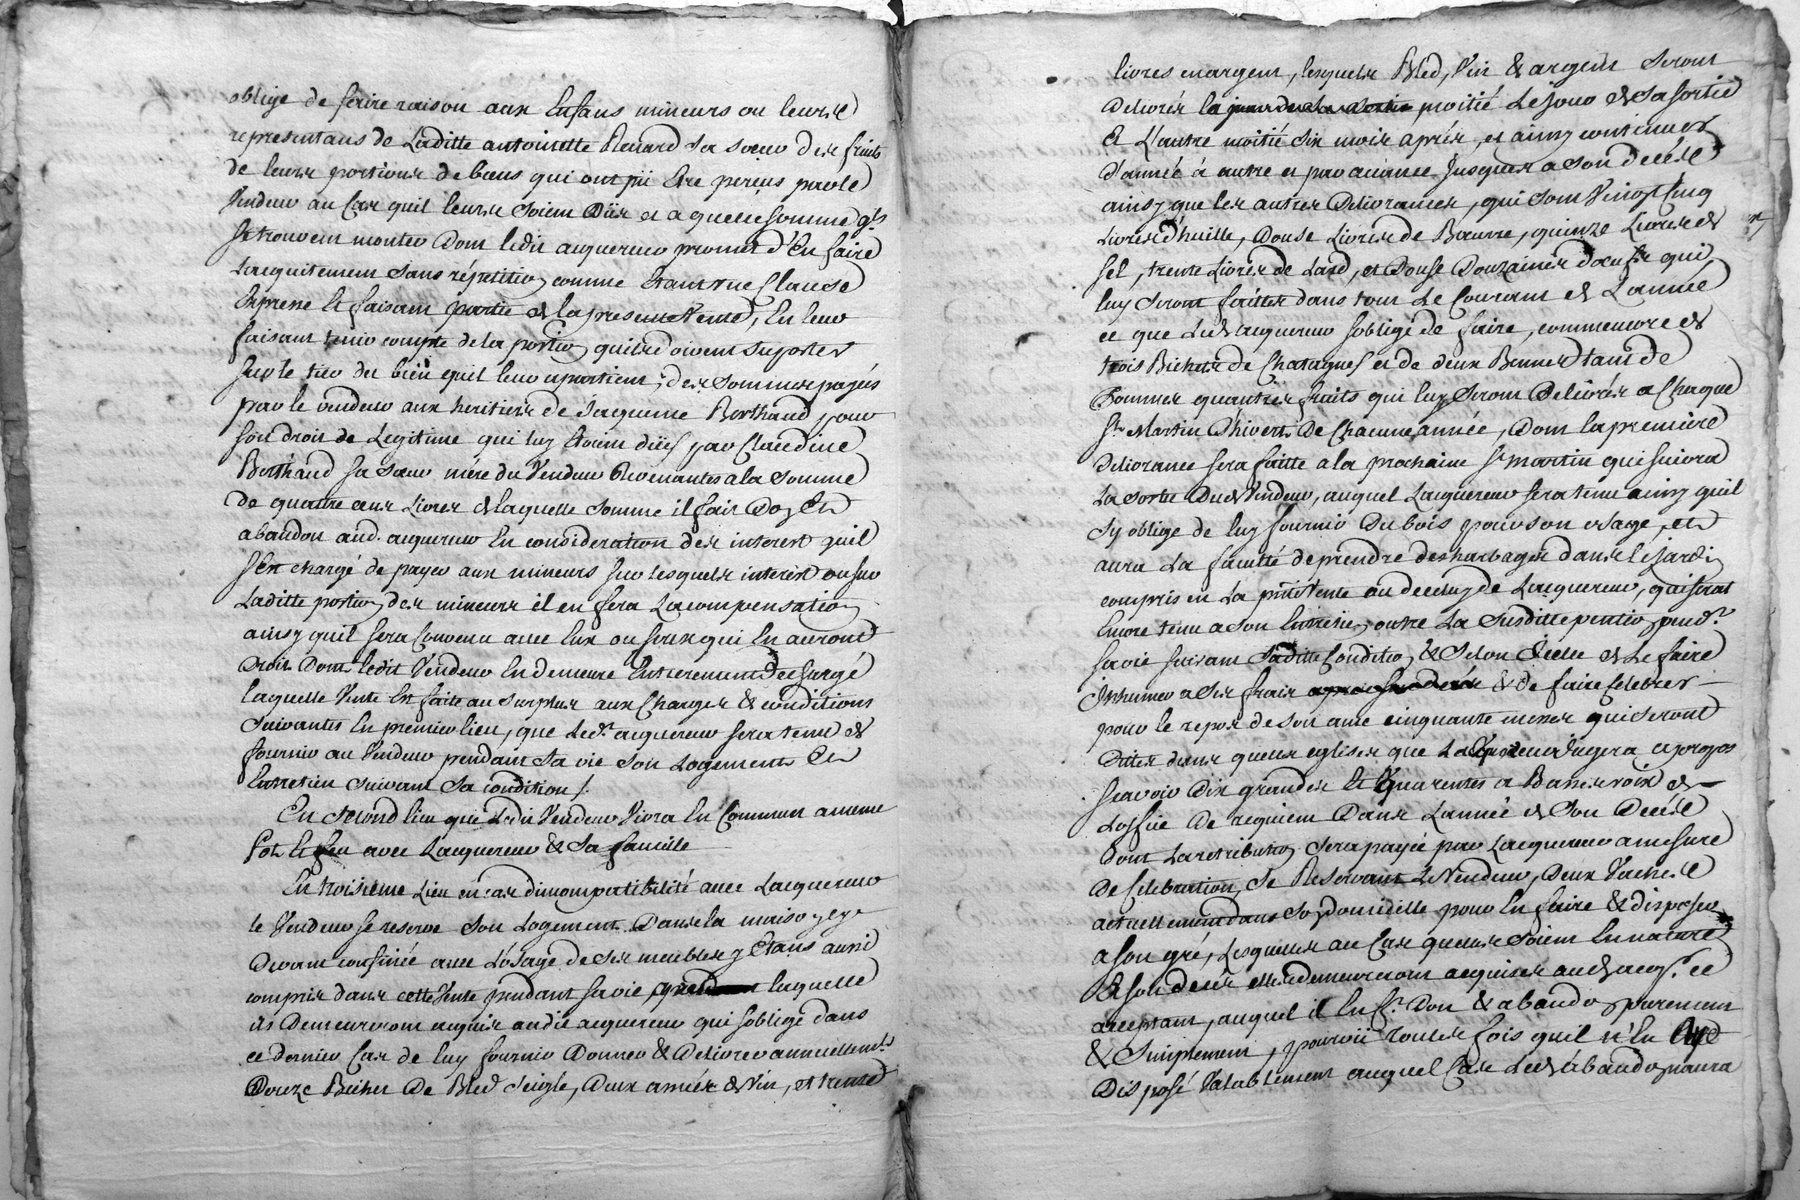 oblige de faire raison aux Enfans mineurs ou leurs
representans de Laditte antoinette Renard sa soeur des fruits
de leurs portions de biens qui ont pü Etre perçus par le
Vendeur au Cas quil leurs soient Düs et a quelle somme qls
se trouvent monter Dont ledit acquereur promet d'En faire
Lacquitement sans répétition comme Etant une Clause
Expresse Et faisant partie de la presente Vente, En leur
faisant tenir compte de la portion quils doivent suporter
sur le tier du bien quil leur apartient, des sommes payés
par le vendeur aux heritiers de Jacqueme Berthaud pour
son droit de Legitime qui luy Etoient düés par Claudine
Berthaud sa soeur mere du Vendeur Revenantes a la somme
de quattre cens Livres de laquelle somme il fait Don Et
abandon aud. acquereur En consideration des interest quil
s'Est chargé de payer aux mineurs sur lesquels interêts ou sur
Laditte portion des mineurs il en fera La compensation
ainsy quil sera Convenu avec Eux ou Ceux qui En auront
Droit Dont ledit Vendeur En demeure Entierement Dechargé
laquelle Vente Est faite au surplus aux Charges & conditions
suivantes En premier lieu, que Ledt acquereur sera tenu de
fournir au Vendeur pendant sa vie son Logement Et
Entretien suivant sa condition /.
En second lieu que Ledit Vendeur Vivra En Commun a meme
Pot Et feu avec Lacquereur & sa famille
En troisieme Lieu en cas dincompatibilité avec Lacquereur
le Vendeur se reserve son Logement Dans la maison cy
Devant confinée avec L'usage de ses meubles y Etans aussi
compris dans cette Vente pendant sa vie laquelle
ils Demeureront acquis audit acquereur qui soblige dans
ce dernier Cas de luy fournir Donner & Delivrer annuellemt
Douze Bichet De Bled Seigle, Deux années de Vin, et trente
livres en argent, lesquels Bled, Vin & argent seront
Delivrés la moitié Le jour de sa sortie
Et L'autre moitié six mois aprés, et ainsy continuer
d'année à autre et par avance Jusques a son decés
ainsy que les autres Delivrances, qui sont Vingt Cinq
Livres d'huille, Douse Livres de Beurre, quinze Livres de
sel, trente Livres de Lard, et Douse Douzaines d'oeufs qui
luy seront faittes dans tout Le Courant de L'année
ce que Led acquereur soblige de faire, comme encore de
trois Bichets de Chataignes et de deux Bennes tant de
Pommes qu'autres fruits qui luy seront Delivrés a Chaque
St Martin D'hivert De Chacune année, Dont la premiére
Delivrance sera faitte a la prochaine St martin qui suivra
La sortie Dud Vendeur, auquel Lacquereur sera tenu ainsy quil
s'y oblige de luy fournir Du bois pour son usage, et
aura La faculté de prendre des herbages dans le Jardin
compris en La pnte Vente au deceuy de Lacquereur, qui sera
Encore tenu a son Entretien, outre La susditte pention pendt
sa vie suivant saditte Condition & selon Icelle de Le faire
Inhumer a ses frais & de faire Celebrer
pour le repos de son ame cinquante messes qui seront
Dittes dans quelles eglises que Lacquereur Jugera a propos
scavoir Dix grandes Et quarentes a Basses voix de
Loffice De requiem Dans L'année de son Décés
dont La retribution sera payée par Lacquereur a mesure
De Celebration, se Reservant Le Vendeur, Deux Vaches
actuellement dans son domicille pour En faire & disposer
a son gré, Lesquelles au Cas quelles soient En nature
a son decés elles demeureront acquises aud acqr. ce
acceptant, auquel il En ft. Don & abandon purement
& simplement, pourvü toutes fois quil n'En aye
Disposé Valablement auquel Cas Led abandon naura